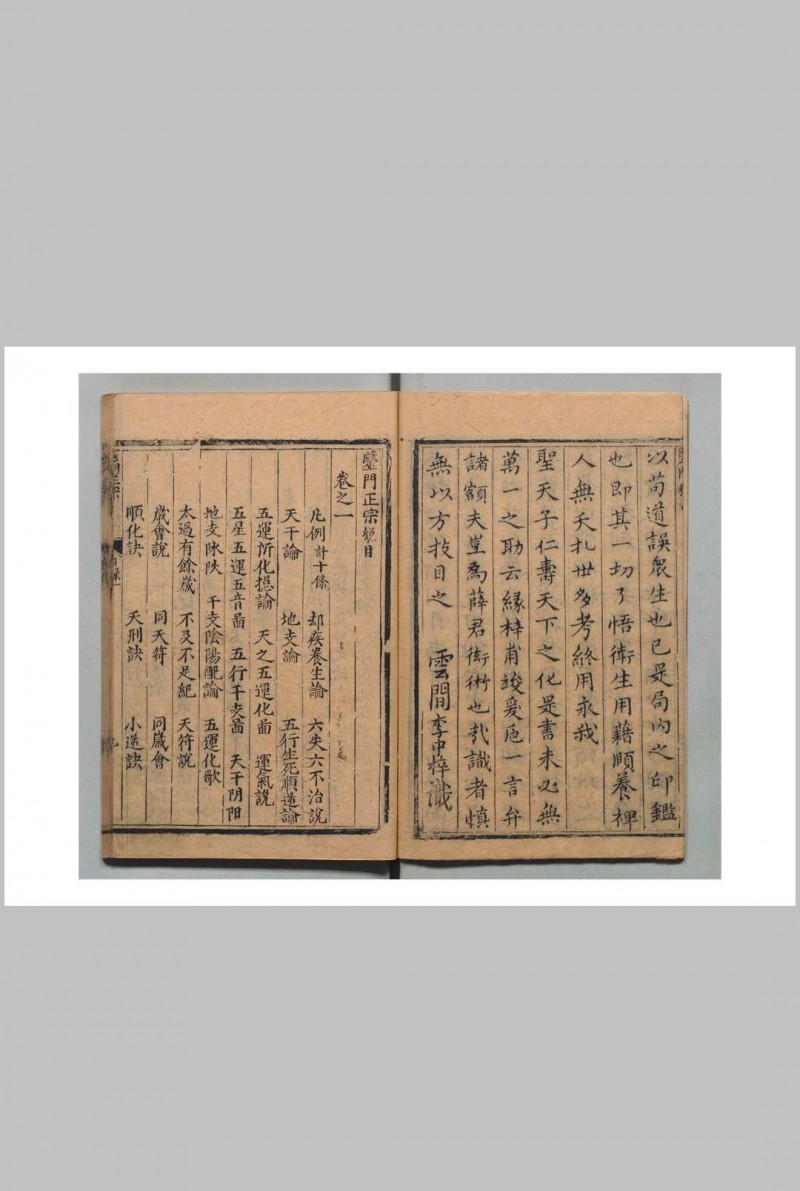 以苟道誤衆生也已是局内之印鑑
也即其一切了悟衛生用藉頤養裨
人無夭札世多考終用永我
聖天子仁壽天下之化是書未必無
萬一之助云緣梓甫竣爰卮一言弁
諸額夫豈爲薛君衒術也哉識者慎
無以方技目之
雲間李中梓識
醫門正宗總目
卷之一
凡例計十條 却疾養生論 六失六不治說
天干論 地支論 五行生死順逆論
五運所化揔論 天之五運化啚 運氣說
五星五運五音啚 五行干支啚 天干阴阳
地支阴阳 干支陰陽配論 五運化歌
太過有餘歲 不及不足紀 天符說
歲會說 同天符 同歲會
順化訣 天刑訣 小逆訣